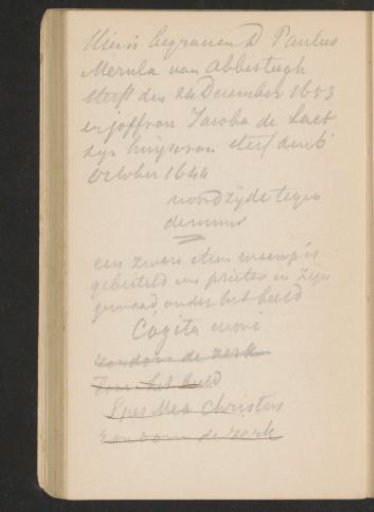 Hier is begraven D Paulus
Merula van Abbestegh
sterft den 24 December 1653
en joffrou Jacoba de Laet
zyn huysvrou sterf den 6
October 1644
noordzijde tegen
de muur
een zwarte steen waarop is
gebeiteld een priester in zijn
gewaad onder het beeld
Cogita mori
rondom de zerk
het beeld
Spes Mea Christus
rondom de zerk